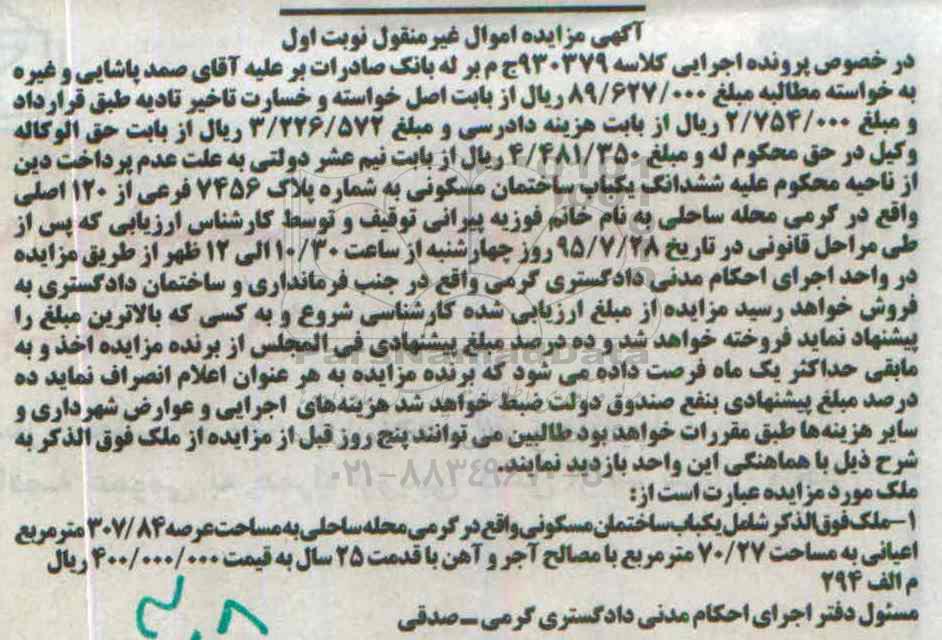 آگهی مزایده اموال غیرمنقول نوبت اول
در خصوص پرونده اجرایی کلاسه ۹۳۰۳۷۹ج م بر له بانک صادرات بر علیه آقای صمد پاشایی و غیره
به خواسته مطالبه مبلغ ۸۹/۶۲۷/۰۰۰ ریال از بابت اصل خواسته و خسارت تاخیر تادیه طبق قرارداد
و مبلغ ۲/۷۵۴/۰۰۰ ریال از بابت هزینه دادرسی و مبلغ ۳/۲۲۶/۵۷۲ ریال از بابت حق الوکاله
وکیل در حق محکوم له و مبلغ ۴/۴۸۱/۳۵۰ ریال از بابت نیم عشر دولتی به علت عدم پرداخت دین
از ناحیه محکوم علیه ششدانگ یکباب ساختمان مسکونی به شماره پلاک ۷۴۵۶ فرعی از ۱۲۰ اصلی
واقع در گرمی محله ساحلی به نام خانم فوزیه پیرانی توقیف و توسط کارشناس ارزیابی که پس از
طی مراحل قانونی در تاریخ ۹۵/۷/۲۸ روز چهارشنبه از ساعت ۱۰/۳۰ الی ۱۲ ظهر از طریق مزایده
در واحد اجرای احکام مدنی دادگستری گرمی واقع در جنب فرمانداری و ساختمان دادگستری به
فروش خواهد رسید مزایده از مبلغ ارزیابی شده کارشناسی شروع و به کسی که بالاترین مبلغ را
پیشنهاد نماید فروخته خواهد شد و ده درصد مبلغ پیشنهادی فی المجلس از برنده مزایده اخذ و به
مابقی حداکثر یک ماه فرصت داده می شود که برنده مزایده به هر عنوان اعلام انصراف نماید ده
درصد مبلغ پیشنهادی بنفع صندوق دولت ضبط خواهد شد هزینه‌های اجرایی و عوارض شهرداری و
سایر هزینه‌ها طبق مقررات خواهد بود طالبین می توانند پنج روز قبل از مزایده از ملک فوق الذکر به
شرح ذیل با هماهنگی این واحد بازدید نمایند.
ملک مورد مزایده عبارت است از:
۱-ملک فوق الذکر شامل یکباب ساختمان مسکونی واقع در گرمی محله ساحلی به مساحت عرصه ۳۰۷/۸۴ مترمربع
اعیانی به مساحت ۷۰/۲۷ مترمربع با مصالح آجر و آهن با قدمت ۲۵ سال به قیمت ۴۰۰/۰۰۰/۰۰۰ ریال
م الف ۲۹۴
مسئول دفتر اجرای احکام مدنی دادگستری گرمی ــ صدقی